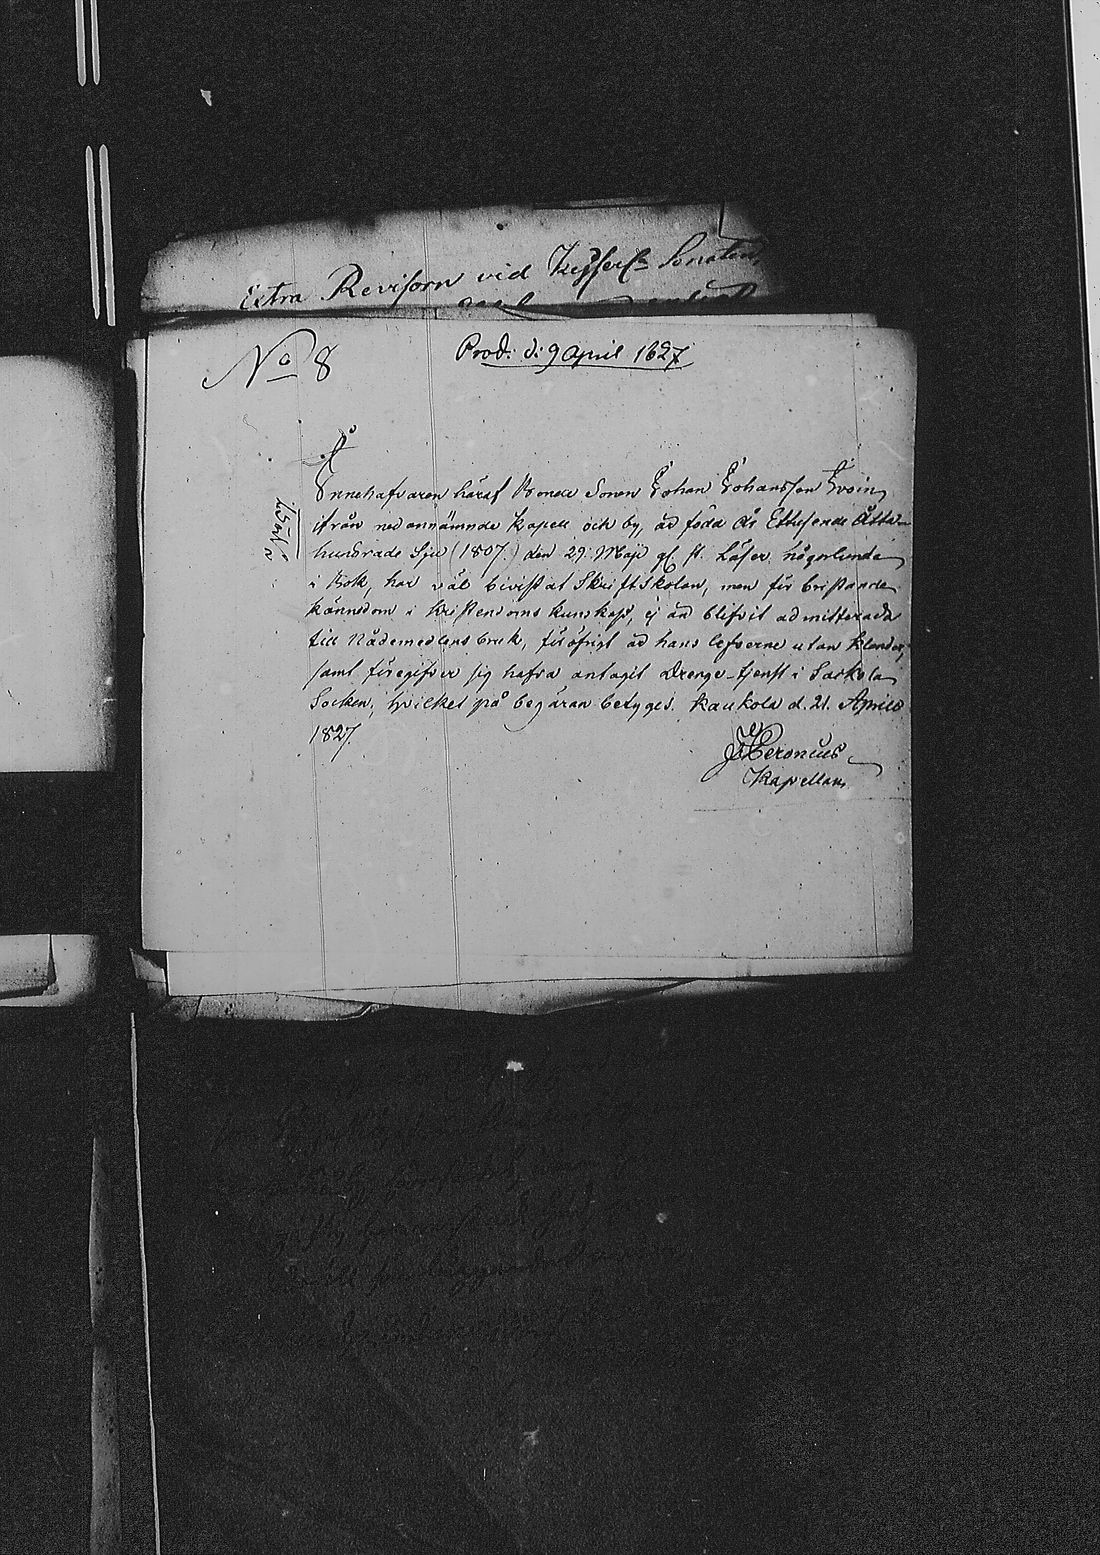 Extra Revisorn vid Kejserl. Senaten
No 8
Prod. d. 9 April 1827
Innehafvaren häraf Bonde Sonen Johan Johansson Kroin
ifrån nedannämnde Kapell och by, är född År Ettusende Åtta
hundrade Sju (1807.) den 29. Maji gl. st. Läser någorlunda
i Bok, har väl bivistat Skriftskolan, men för bristande
kännedom i Kristendoms kunskap, ej än blifvit admitterad
till Nådemedlens bruk, för öfrigt är hans lefverne utan klander,
samt föregifver sig hafva antagit Drenge-tjenst i Sackola
Socken; hvilket på begäran betygas. Kaukola d. 21. Aprill
1827.
J. Heronius
Kapellan